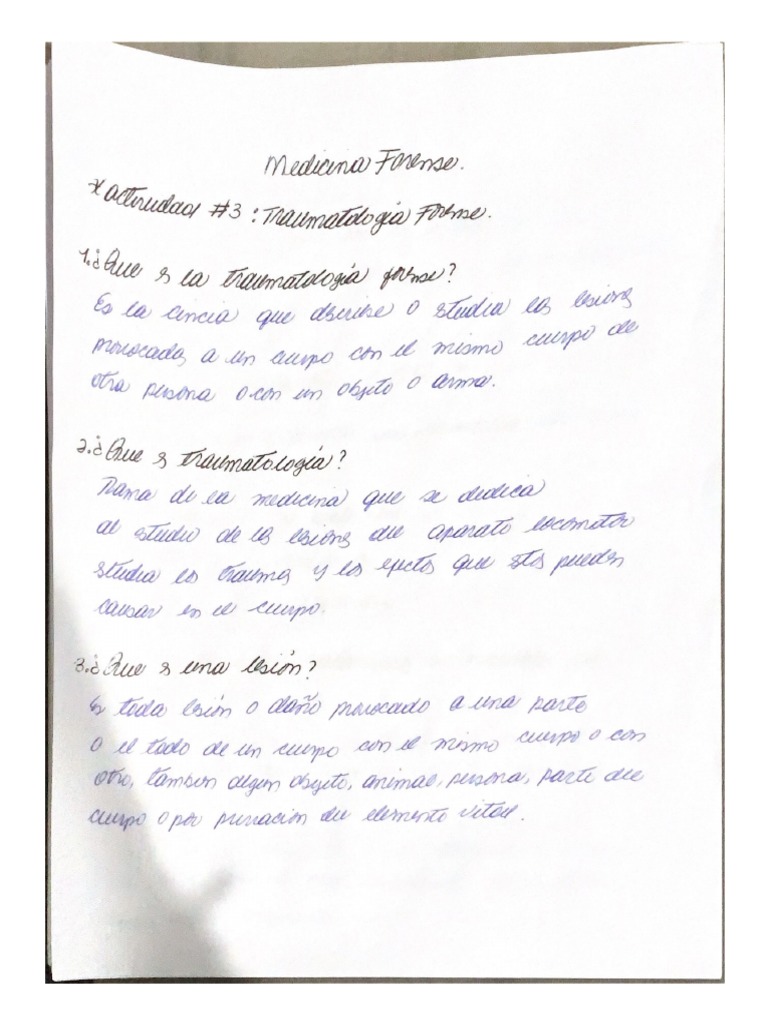 Medicina Forense.
* Actividad #3: Traumatología Forense.
1. ¿Que es la traumatología forense?
Es la ciencia que describe o estudia las lesiones
provocadas a un cuerpo con el mismo cuerpo de
otra persona o con un objeto o arma.
2. ¿Que es traumatología?
Rama de la medicina que se dedica
al estudio de las lesiones del aparato locomotor
estudia los traumas y los efectos que estos pueden
causar en el cuerpo.
3. ¿Que es una lesión?
Es toda lesión o daño provocado a una parte
o el todo de un cuerpo con el mismo cuerpo o con
otro, tambien algun objeto, animal, persona, parte del
cuerpo o por privación del elemento vital.